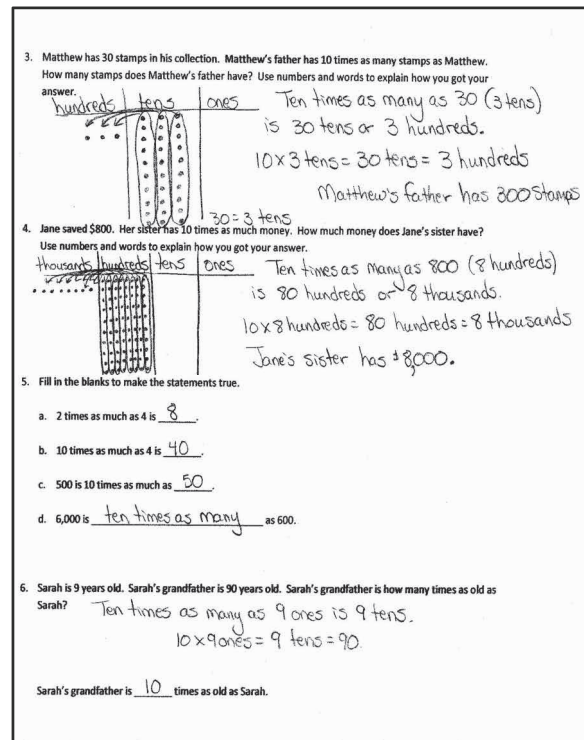 3. Matthew has 30 stamps in his collection. Matthew's father has 10 times as many stamps as Matthew.
How many stamps does Matthew's father have? Use numbers and words to explain how you got your
answer.
hundreds tens ones
Ten times as many as 30 (3 tens)
is 30 tens or 3 hundreds.
10 x 3 tens = 30 tens = 3 hundreds
Matthew's father has 300 stamps
30 = 3 tens
4. Jane saved $800. Her sister has 10 times as much money. How much money does Jane's sister have?
Use numbers and words to explain how you got your answer.
thousands hundreds tens ones
Ten times as many as 800 (8 hundreds)
is 80 hundreds or 8 thousands.
10 x 8 hundreds = 80 hundreds = 8 thousands
Jane's sister has $8,000.
5. Fill in the blanks to make the statements true.
a. 2 times as much as 4 is 8.
b. 10 times as much as 4 is 40.
c. 500 is 10 times as much as 50.
d. 6,000 is ten times as many as 600.
6. Sarah is 9 years old. Sarah's grandfather is 90 years old. Sarah's grandfather is how many times as old as
Sarah?
Ten times as many as 9 ones is 9 tens.
10 x 9 ones = 9 tens = 90.
Sarah's grandfather is 10 times as old as Sarah.